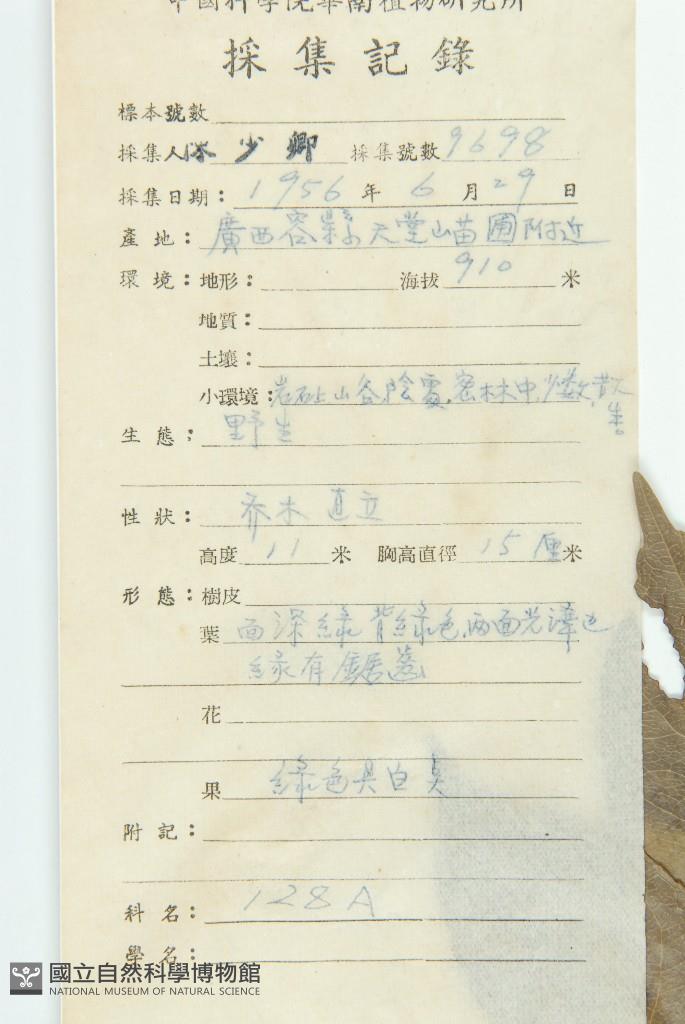 中國科學院華南植物研究所
採集記錄
標本號數
採集人 陳少卿 採集號數 9698
採集日期：1956 年 6 月 29 日
產地：廣西容縣天堂山苗圃附近
環境：地形： 海拔 910 米
地質：
土壤：
小環境：岩石上山谷,陰處,密林中,少數,散生
生態：野生
性狀：乔木 直立
高度 11 米 胸高直徑 15 厘米
形態：樹皮
葉 面深綠背綠色,两面光澤边
緣有鋸齒
花
果 綠色具白
附記：
科名：128A
學名：
國立自然科學博物館
NATIONAL MUSEUM OF NATURAL SCIENCE